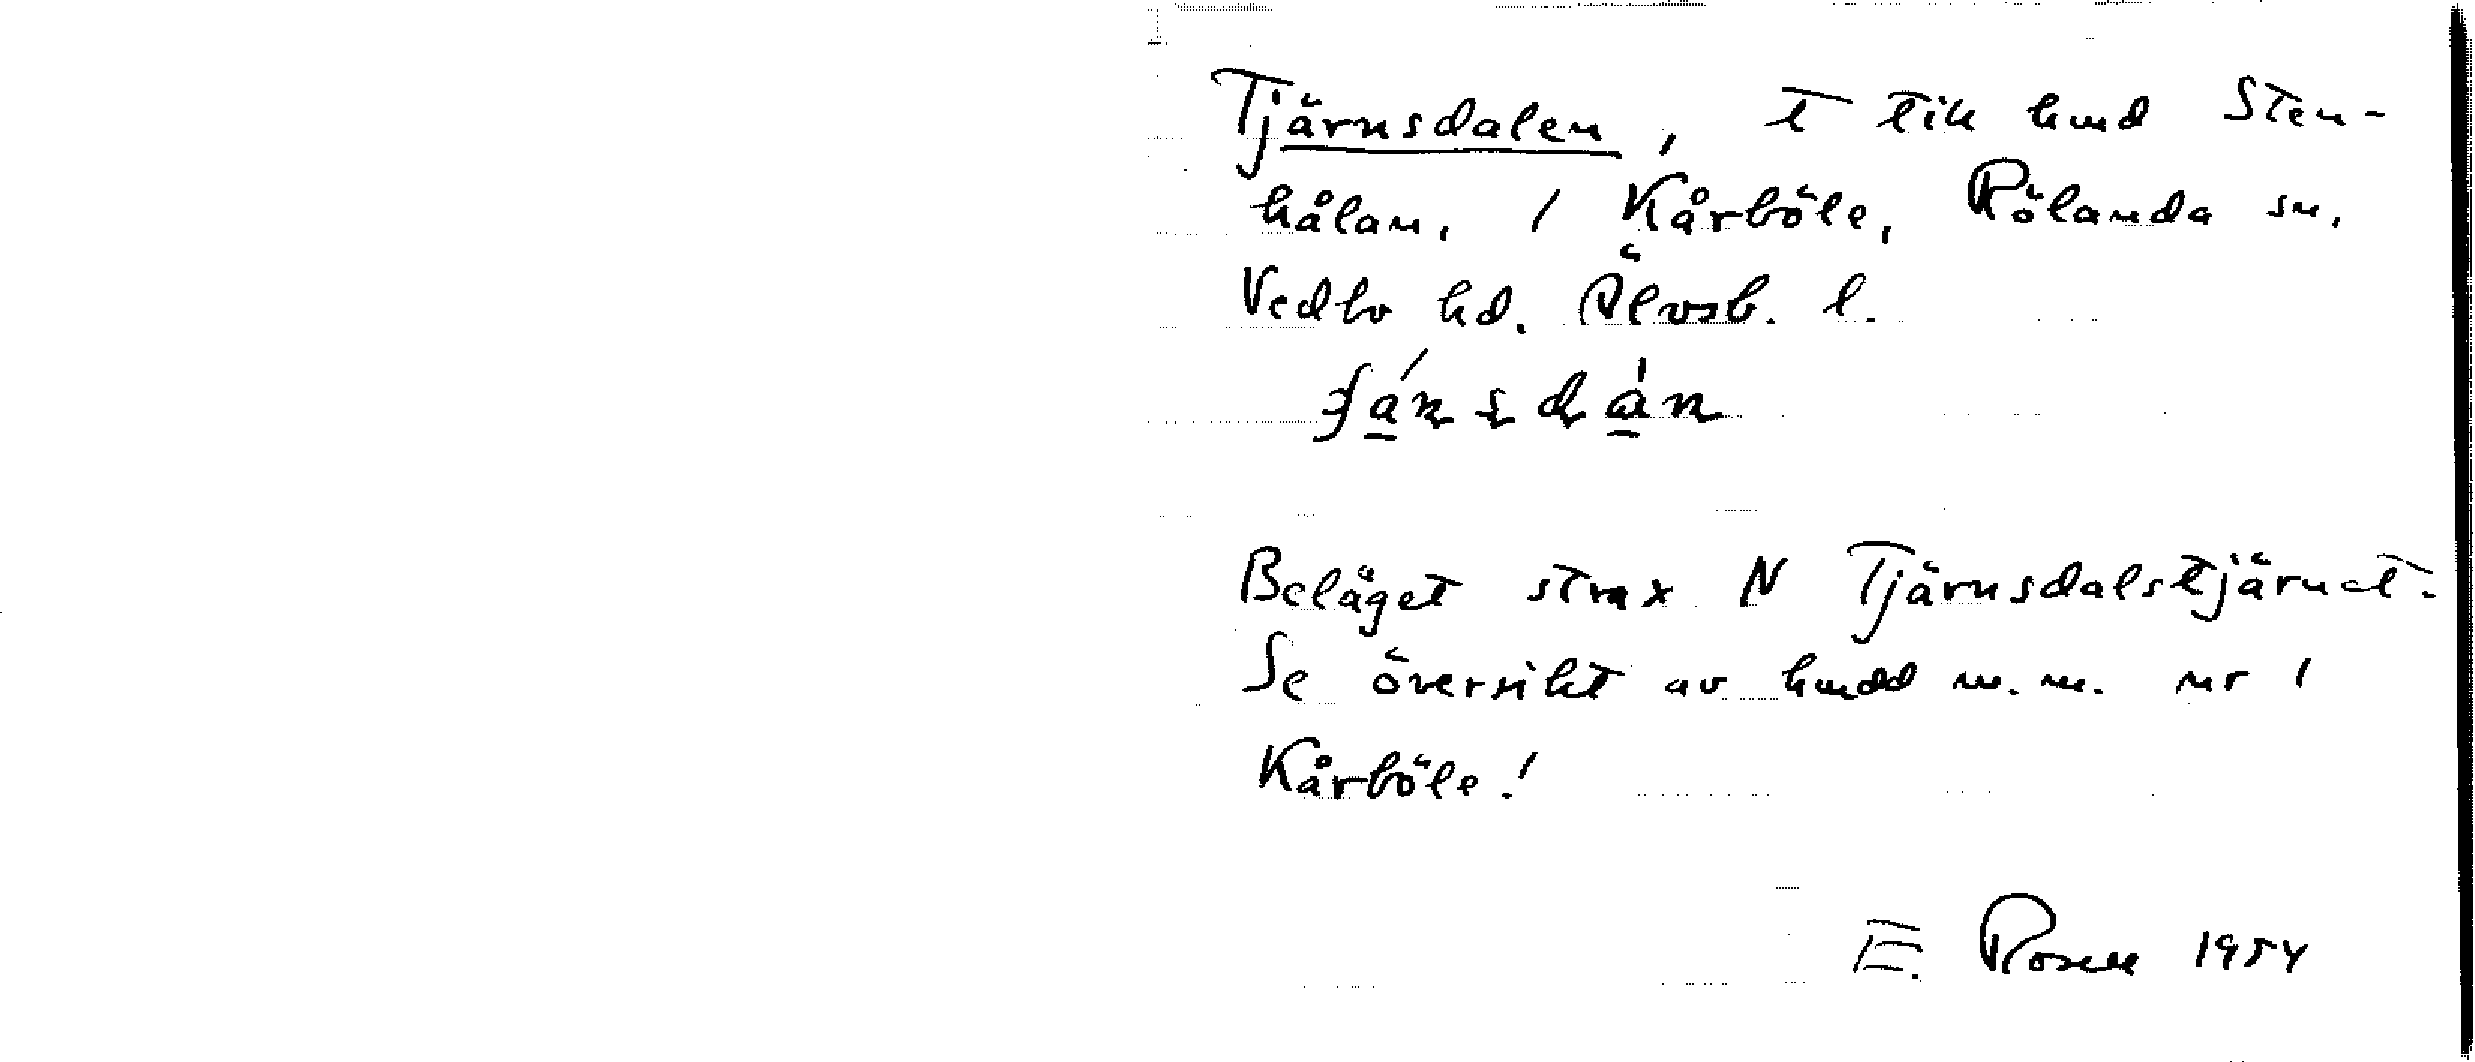 Tjärnsdalen, t till hmd Sten-
hålan, 1 Kårböle, Rölanda sn,
Vedbo hd. Älvsb. l.
Beläget strax N Tjärnsdalstjärnet.
Se översikt av hmdd m.m. nr 1
Kårböle!
E. Rosell 1954